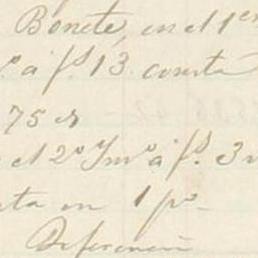 Bonete, en el 1er
º a fs. 13 consta
75 rs
el 2º Invº a fs. 3
ta en 1 pº
Diferencia